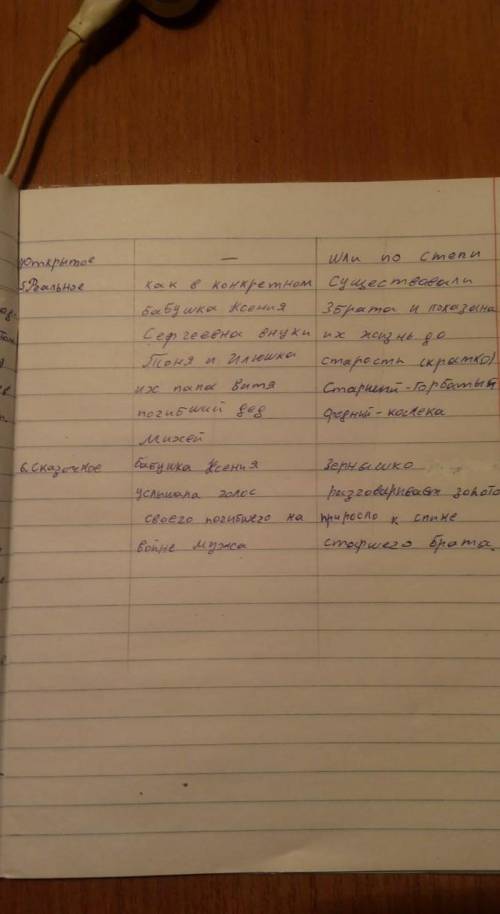 Открытое — Шли по степи
5.Реальное как в конкретном Существовали
бабушка Ксения 3брата и показана
Сергеевна внуки их жизнь до
Тоня и Илюшка старости (кратко)
их папа Витя Старший-Горбатый
погибший дед средний-калека
Михей
6.Сказочное бабушка Ксения Зернышко
услышала голос разговаривает золото
своего погибшего на приросло к спине
войне мужа старшего брата.